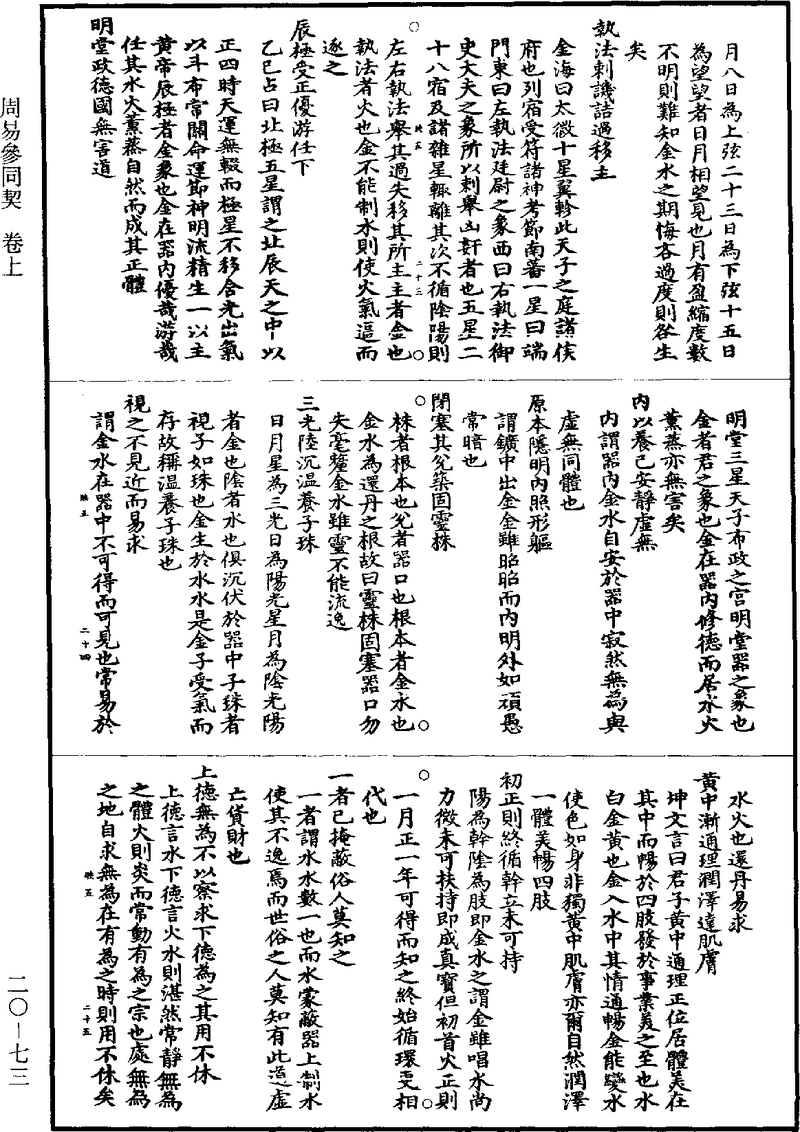 月八日為上弦二十三日為下弦十五日
為望望者日月相望見也月有盈縮度數
不明則難知金水之期悔吝過度則咎生
矣
執法刺譏詰過移主
金海曰太微十星翼軫此天子之庭諸侯
府也列宿受符諸神考節南蕃一星曰端
門東曰左執法廷尉之象西曰右執法御
史大夫之象所以刺舉凶奸者也五星二
十八宿及諸雜星輒離其次不循陰陽則
左右執法舉其過失移其所主主者金也
執法者火也金不能制水則使火氣逼而
逐之
辰極受正優游任下
乙巳占曰北極五星謂之北辰天之中以
正四時天運無輟而極星不移含光出氣
以斗布常開命運節神明流精生一以主
黃帝辰極者金象也金在器內優哉游哉
任其水火薰蒸自然而成其正體
明堂政德國無害道
明堂三星天子布政之宮明堂器之象也
金者君之象也金在器內修德而居水火
薰蒸亦無害矣
內以養己安靜虛無
內謂器內金水自安於器中寂然無為與
虛無同體也
原本隱明內照形軀
謂鑛中出金金雖昭昭而內明外如頑愚
常暗也
閉塞其兌築固靈株
株者根本也兌者器口也根本者金水也
金水為還丹之根故曰靈株固塞器口勿
失毫釐金水雖靈不能流逸
三光陸沉溫養子珠
日月星為三光日為陽光星月為陰光陽
者金也陰者水也俱沉伏於器中子珠者
視子如珠也金生於水水是金子受氣而
存故稱溫養子珠也
視之不見近而易求
謂金水在器中不可得而可見也常易於
水火也還丹易求
黃中漸通理潤澤達肌膚
坤文言曰君子黃中通理正位居體美在
其中而暢於四肢發於事業美之至也水
白金黃也金入水中其情通暢金能變水
使色如身非獨黃中肌膚亦爾自然潤澤
一體美暢四肢
初正則終循幹立未可持
陽為幹陰為肢即金水之謂金雖唱水尚
力微未可扶持即成真寶但初首火正則
一月正一年可得而知之終始循環更相
代也
一者已掩蔽俗人莫知之
一者謂水水數一也而水蒙蔽器上制水
使其不逸焉而世俗之人莫知有此道虛
亡貨財也
上德無為不以察求下德為之其用不休
上德言水下德言火水則湛然常靜無為
之體火則炎而常動有為之宗也處無為
之地自求無為在有為之時則用不休矣
映五 二十三
映五 二十四
映五 二十五
周易參同契 卷上
二〇—七三